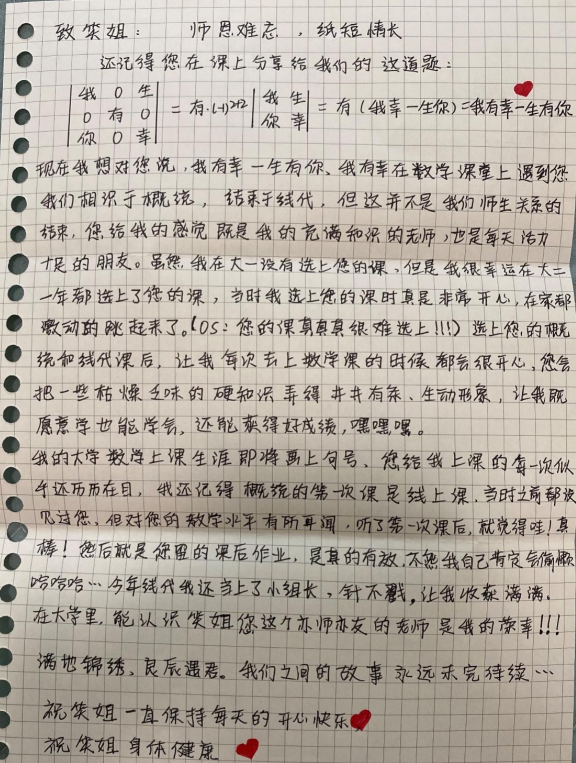 致笑姐： 师恩难忘，纸短情长
还记得您在课上分享给我们的这道题：
|我 0 生|
|0 有 0| = 有·(-1)²⁺² |我 生| = 有(我幸一生你)=我有幸一生有你
|你 0 幸| |你 幸|
现在我想对您说，我有幸一生有你、我有幸在数学课堂上遇到您
我们相识于概统，结束于线代，但这并不是我们师生关系的
结束，您给我的感觉既是我的充满知识的老师，也是每天活力
十足的朋友。虽然我在大一没有选上您的课，但是我很幸运在大二
一年都选上了您的课，当时我选上您的课时真是非常开心，在家都
激动的跳起来了。(OS：您的课真真真很难选上!!!)选上您的概
统和线代课后，让我每次去上数学课的时候都会很开心，您会
把一些枯燥乏味的硬知识弄得井井有条、生动形象，让我既
愿意学也能学会，还能获得好成绩，嘿嘿嘿。
我的大学数学上课生涯即将画上句号、您给我上课的每一次似
乎还历历在目，我还记得概统的第一次课是线上课，当时之前都没
见过您，但对您的教学水平有所耳闻，听了第一次课后，就觉得哇！真
棒！然后就是您留的课后作业，是真的有效，不然我自己肯定会偷懒
哈哈哈…今年线代我还当上了小组长，针不戳，让我收获满满，
在大学里，能认识笑姐您这个亦师亦友的老师是我的荣幸!!!
满地锦绣、良辰遇君。我们之间的故事永远未完待续…
祝笑姐一直保持每天的开心快乐
祝笑姐身体健康